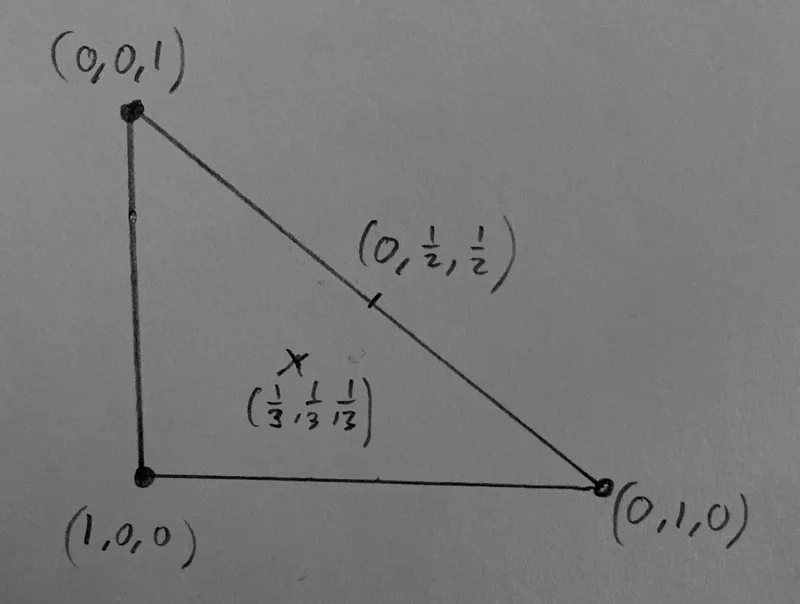 (0,0,1)
(0,1/2,1/2)
x
(1/3,1/3,1/3)
(1,0,0)
(0,1,0)